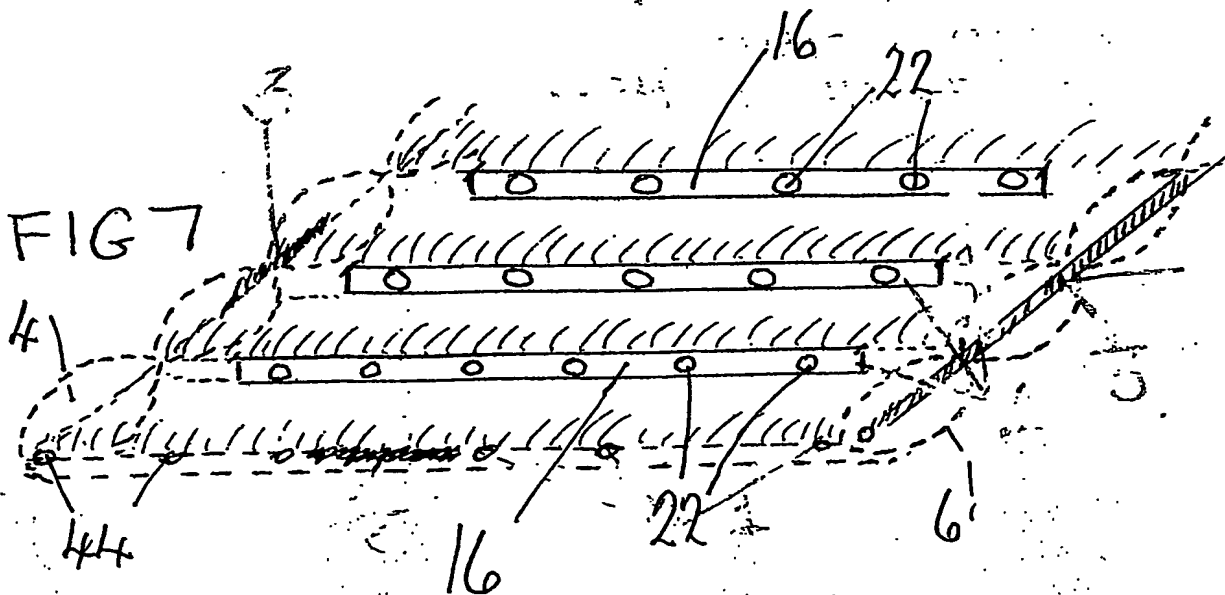 16
22
2
FIG 7
4
44
16
22
6